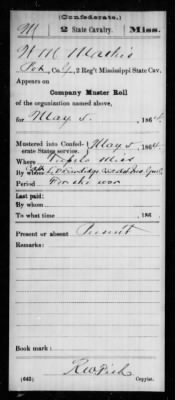 (Confederate.)
M 2 State Cavalry. Miss.
Co. 2 Reg't Mississippi State Cav.
Appears on
Company Muster Roll
of the organization named above,
for May 5, 1864.
Mustered into Confed-
erate States service. May 5, 1864.
Where Tupelo Miss
By whom
Period For the war
Last paid:
By whom
To what time , 186 .
Present or absent Present
Remarks:
Book mark:
(642) Copyist.